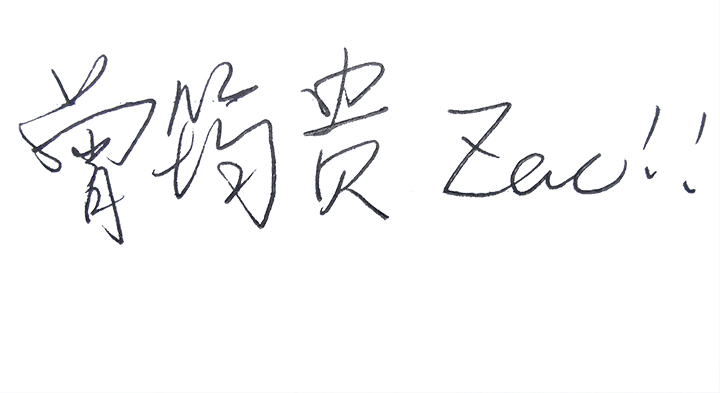 曾筠贵 Zac!!